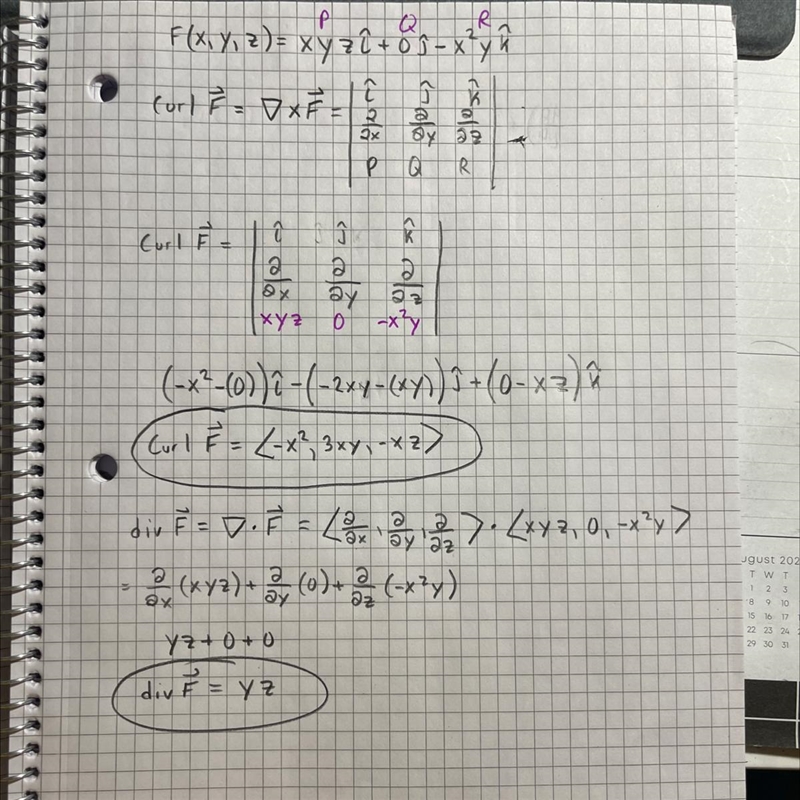 P Q R
F(x,y,z) = xyz î + 0 ĵ - x²y k̂
Curl F⃗ = ∇ × F⃗ = | î ĵ k̂ |
∂/∂x ∂/∂y ∂/∂z
P Q R
Curl F⃗ = | î ĵ k̂ |
∂/∂x ∂/∂y ∂/∂z
xyz 0 -x²y
(-x²-(0)) î - (-2xy-(xy)) ĵ + (0-xz) k̂
Curl F⃗ = ⟨-x², 3xy, -xz⟩
div F⃗ = ∇ · F⃗ = ⟨∂/∂x, ∂/∂y, ∂/∂z⟩ · ⟨xyz, 0, -x²y⟩
= ∂/∂x (xyz) + ∂/∂y (0) + ∂/∂z (-x²y)
yz + 0 + 0
div F⃗ = yz
ugust 202
T W T
1 2 3
8 9 10
15 16 17
22 23 24
29 30 31